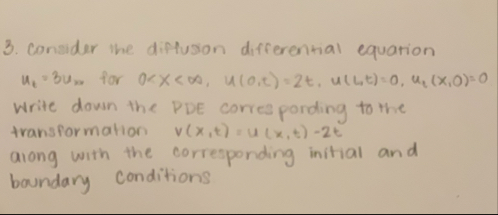 3. Consider the diffusion differential equation
uₜ = 3uₓₓ for 0<x<∞, u(0,t)=2t, u(1,t)=0, uₜ(x,0)=0
Write down the PDE corresponding to the
transformation v(x,t) = u(x,t) -2t
along with the corresponding initial and
boundary conditions